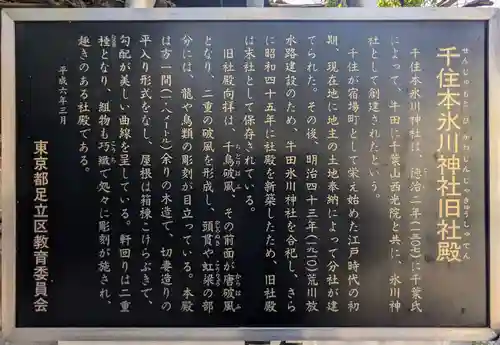 千住本氷川神社旧社殿
せんじゅもとひかわじんじゃきゅうしゃでん
千住本氷川神社は、徳治二年(一三〇七)に千葉氏
によって、牛田に千葉山西光院と共に、氷川神
社として創建されたという。
千住が宿場町として栄え始めた江戸時代の初
期、現在地に地主の土地奉納によって分社が建
てられた。その後、明治四十三年(一九一〇)荒川放
水路建設のため、牛田氷川神社を合祀し、さら
に昭和四十五年に社殿を新築したため、旧社殿
は末社として保存されている。
旧社殿向拝は、千鳥破風、その前面が唐破風
となり、二重の破風を形成し、頭貫や虹梁の部
分には、龍や鳥類の彫刻が目立っている。本殿
は方一間(一.八メートル)余りの木造で、切妻造りの
平入り形式をなし、屋根は箱棟こけらぶきで、
勾配が美しい曲線を呈している。軒回りは二重
種となり、組物も巧緻で処々に彫刻が施され、
趣きのある社殿である。
平成六年三月
東京都足立区教育委員会